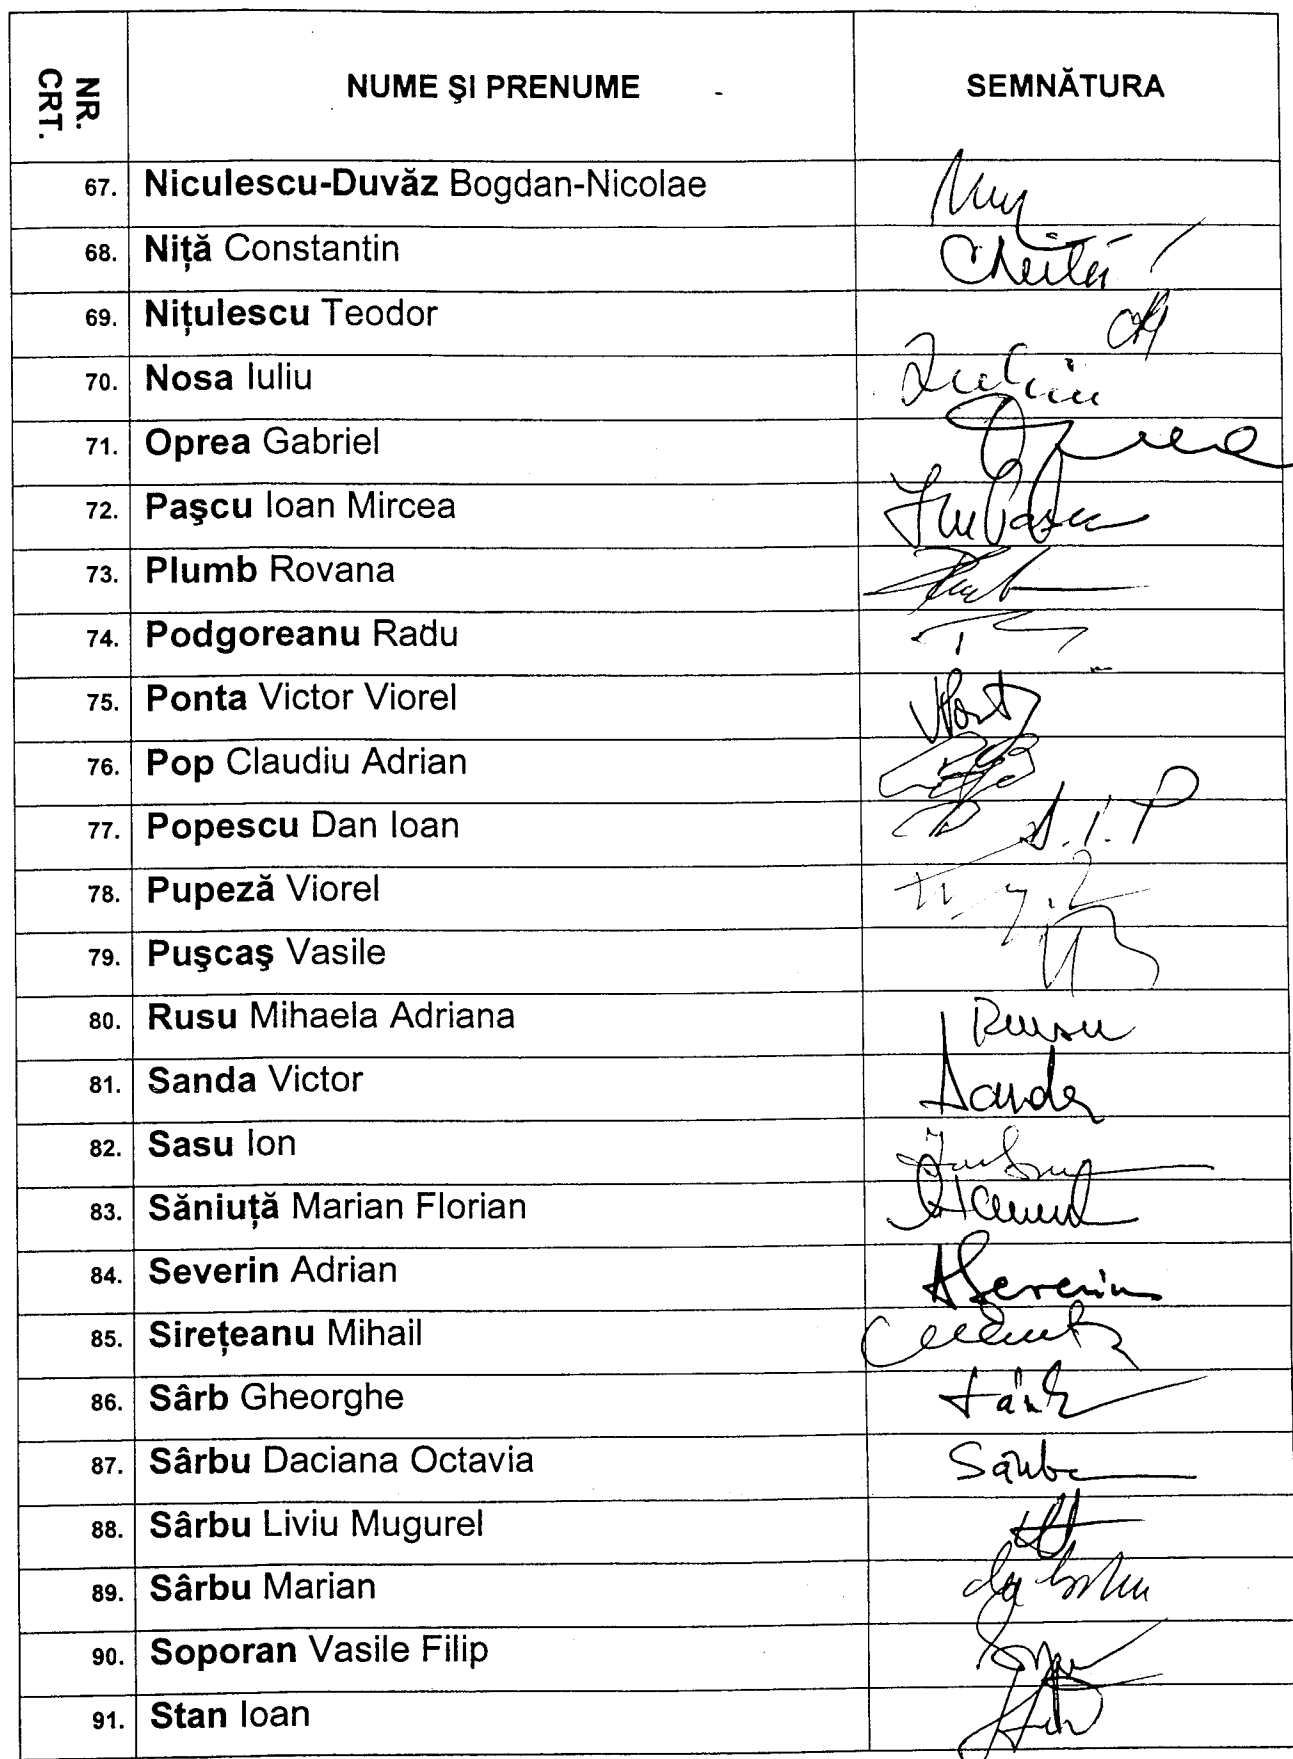 NR. CRT. NUME ŞI PRENUME SEMNĂTURA
67. Niculescu-Duvăz Bogdan-Nicolae
68. Niţă Constantin
69. Niţulescu Teodor
70. Nosa Iuliu Iuliu
71. Oprea Gabriel Oprea
72. Paşcu Ioan Mircea
73. Plumb Rovana
74. Podgoreanu Radu
75. Ponta Victor Viorel
76. Pop Claudiu Adrian
77. Popescu Dan Ioan D.I.P
78. Pupeză Viorel
79. Puşcaş Vasile
80. Rusu Mihaela Adriana Rusu
81. Sanda Victor Sanda
82. Sasu Ion
83. Săniuţă Marian Florian
84. Severin Adrian ASeverin
85. Sireţeanu Mihail
86. Sârb Gheorghe Sârb
87. Sârbu Daciana Octavia Sârbu
88. Sârbu Liviu Mugurel
89. Sârbu Marian
90. Soporan Vasile Filip
91. Stan Ioan